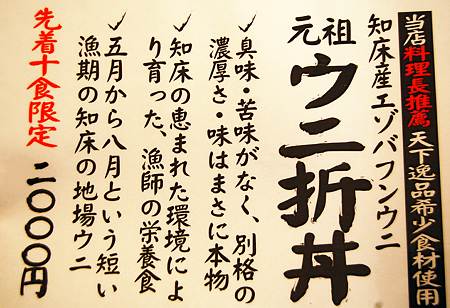 当店料理長推薦 天下逸品希少食材使用
知床産エゾバフンウニ
元祖
ウニ折丼
✓臭味・苦味がなく、別格の
濃厚さ・味はまさに本物
✓知床の恵まれた環境によ
り育った、漁師の栄養食
✓五月から八月という短い
漁期の知床の地場ウニ
先着十食限定
二〇〇〇円